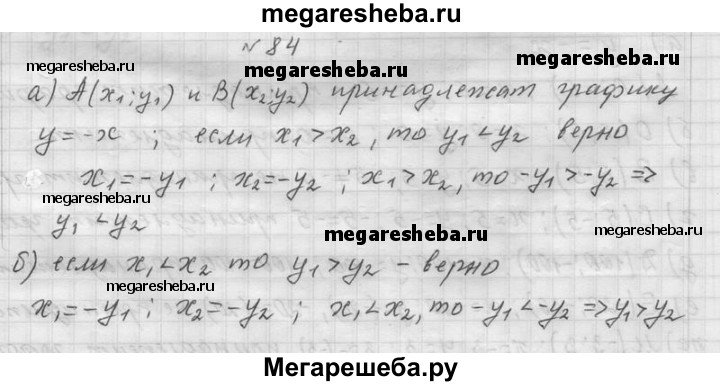 megaresheba.ru
№ 84
megaresheba.ru megaresheba.ru megaresheba.ru
а) A(x₁;y₁) и B(x₂;y₂) принадлежат графику
y=-x ; если x₁>x₂, то y₁<y₂ верно
x₁=-y₁ ; x₂=-y₂ ; x₁>x₂, то -y₁>-y₂ =>
y₁<y₂
megaresheba.ru megaresheba.ru
б) если x₁<x₂ то y₁>y₂ - верно
megaresheba.ru
x₁=-y₁ ; x₂=-y₂ ; x₁<x₂, то -y₁<-y₂ => y₁>y₂
Мегарешеба.ру